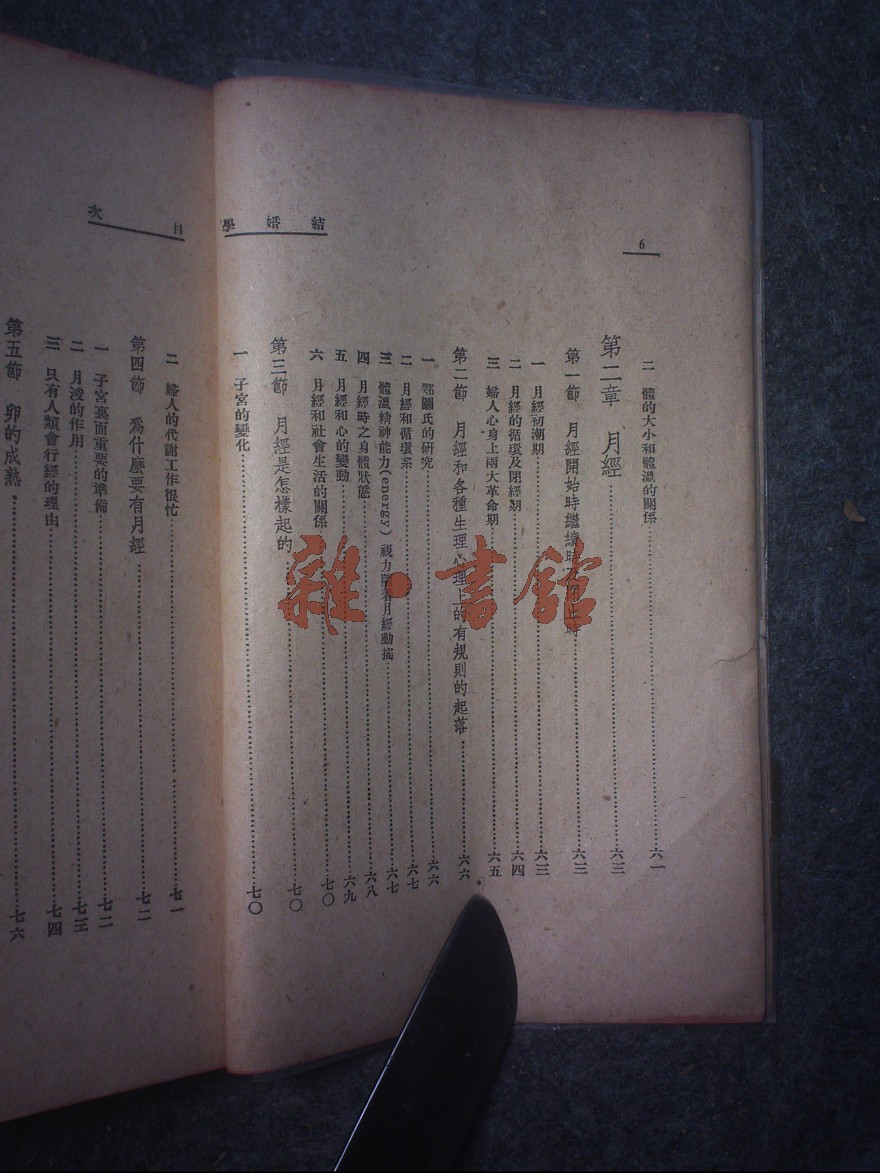 6
結婚學
二 體的大小和體溫的關係……六一
第二章 月經……六三
第一節 月經開始時繼續時……六三
一 月經初潮期……六三
二 月經的循環及閉經期……六四
三 婦人心身上兩大革命期……六五
第二節 月經和各種生理心理上的有規則的起落……六六
一 鄂圖氏的研究……六六
二 月經和循環系……六七
三 體溫精神能力(energy)視力隨着月經動搖……六七
四 月經時之身體狀態……六八
五 月經和心的變動……六九
六 月經和社會生活的關係……七〇
第三節 月經是怎樣起的……七〇
一 子宮的變化……七〇
目次
二 婦人的代謝工作很忙……七一
第四節 為什麼要有月經……七二
一 子宮裏面重要的準備……七二
二 月浚的作用……七三
三 只有人類會行經的理由……七四
第五節 卵的成熟……七六
雜·書館